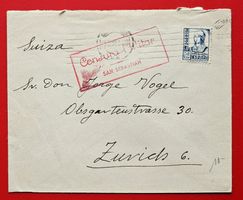 Suiza
Censura Militar
SAN SEBASTIAN
Sr. don Jorge Vogel
Obsgartenstrasse 30.
Zurich 6.